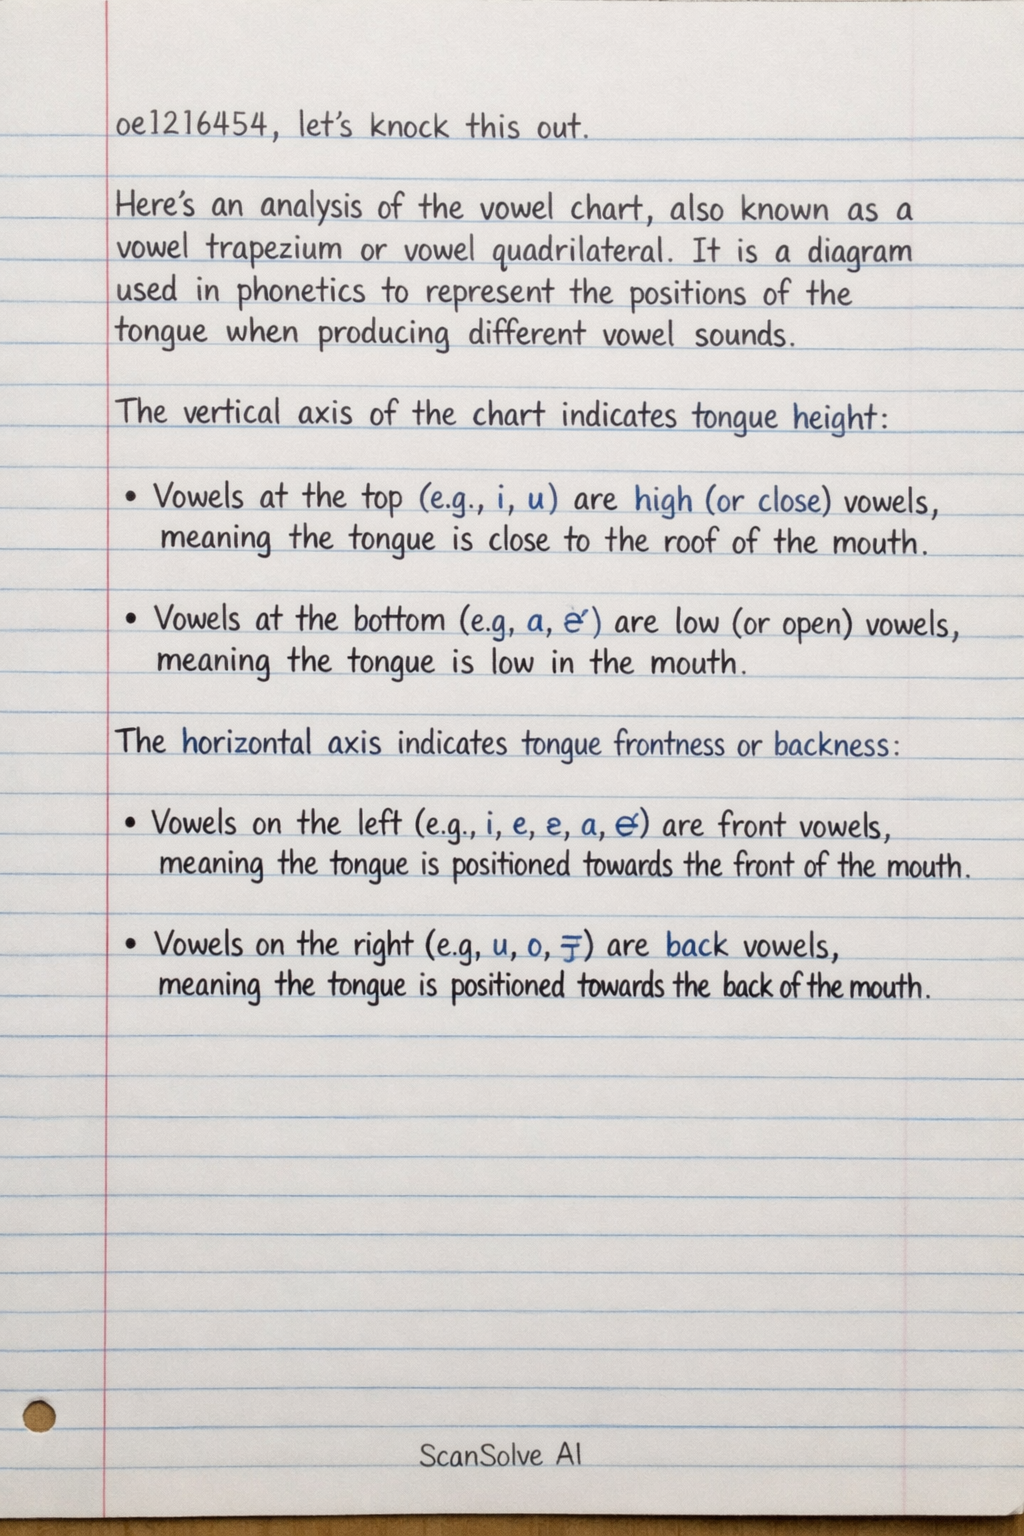 oe1216454, let's knock this out.
Here's an analysis of the vowel chart, also known as a
vowel trapezium or vowel quadrilateral. It is a diagram
used in phonetics to represent the positions of the
tongue when producing different vowel sounds.
The vertical axis of the chart indicates tongue height:
• Vowels at the top (e.g., i, u) are high (or close) vowels,
meaning the tongue is close to the roof of the mouth.
• Vowels at the bottom (e.g, a, ) are low (or open) vowels,
meaning the tongue is low in the mouth.
The horizontal axis indicates tongue frontness or backness:
• Vowels on the left (e.g., i, e, a, ) are front vowels,
meaning the tongue is positioned towards the front of the mouth.
• Vowels on the right (e.g, u, o, ) are back vowels,
meaning the tongue is positioned towards the back of the mouth.
ScanSolve AI